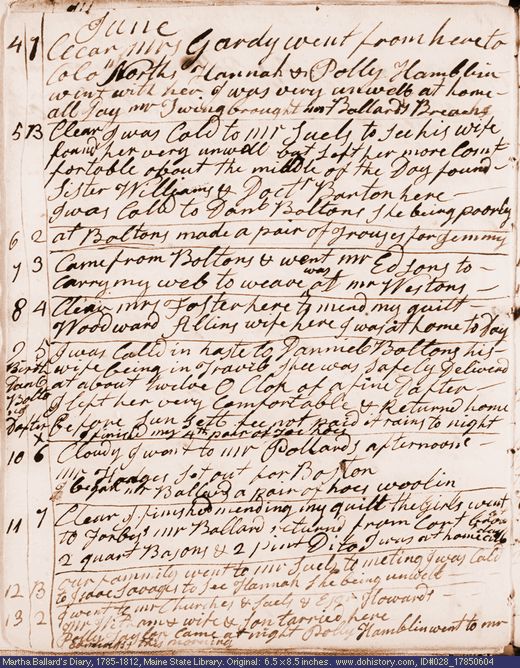 June
4 7 Clear, Mrs Gardy went from here to
Colo Norths Hannah & Polly Hamblin
went with her. I was very unwell at home
all Day mr Ewing brought mr Ballards Breachs
5 B Clear I was Calld to Mr Suels to See his wife
found her very unwell but left her more Comt
fortable about the middle of the Day found
Sister Williams & Doctr Barton here
I was Calld to Danl Boltons She being poorly
6 2 at Boltons made a pair of Trouses for Jemmy
7 3 Came from Boltons & went mr Edsons to
Carry my web to weave was at mr Westons
8 4 Clear mrs Foster here to mend my quilt
Woodward Allins wife here I was at home to Day
9 5 I was Calld in haste to Danniel Boltons his
Birth wife being in Travil Shee was Safely Deliverd
Danl at about twelve O Clok of a fine Dafter
Bolto I left her very Comfortable & Returnd home
ns Before Sun Sett. fee not Paid it rains to night
Dafter X I finisd my 4th pair of
10 6 Cloudy I went to mr Pollards afternoon
mr Set out for Boston
I began mr Ballard a Pair of hoes woolin
11 7 Clear I finished mending my quilt the Girls went
to Forbys mr Ballard returnd from Cort
2 quart Basons & 2 Pint Dito I was at home
12 B our fammily went to mr Suels to meting I was Calld
to Isaac Savages to See Hannah She being unwell
13 2 I went to mr Churches & Suels & Esqr Howards
mr & wife & Son tarried here
Polly Came at night Polly Hamblin went to mr
this morning
Martha Ballard's Diary, 1785-1812, Maine State Library. Original: 6.5 x 8.5 inches. www.dohistory.com, ID#028_17850604